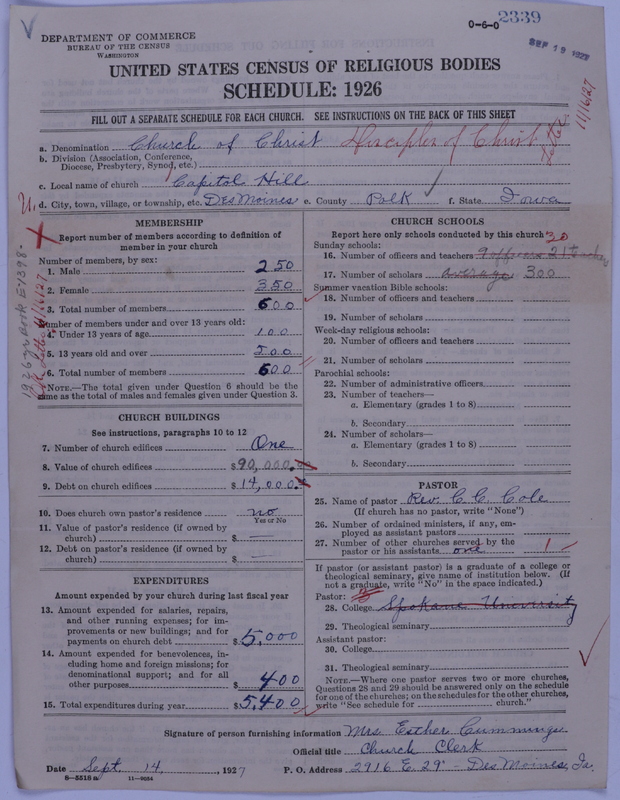 0-6-0 2339
SEP 19 1927
DEPARTMENT OF COMMERCE
BUREAU OF THE CENSUS
WASHINGTON
UNITED STATES CENSUS OF RELIGIOUS BODIES
SCHEDULE: 1926
11/16/27
FILL OUT A SEPARATE SCHEDULE FOR EACH CHURCH. SEE INSTRUCTIONS ON THE BACK OF THIS SHEET
a. Denomination Church of Christ Disciples of Christ
b. Division (Association, Conference,
Diocese, Presbytery, Synod, etc.)
c. Local name of church Capitol Hill
U. d. City, town, village, or township, etc. Des Moines e. County Polk f. State Iowa
MEMBERSHIP
Report number of members according to definition of
member in your church
Number of members, by sex:
1. Male 250
2. Female 350
3. Total number of members 600
Number of members under and over 13 years old:
4. Under 13 years of age 100
5. 13 years old and over 500
6. Total number of members 600
NOTE.—The total given under Question 6 should be the
same as the total of males and females given under Question 3.
CHURCH BUILDINGS
See instructions, paragraphs 10 to 12
7. Number of church edifices One
8. Value of church edifices $90,000.
9. Debt on church edifices $14,000.
10. Does church own pastor's residence no
Yes or No
11. Value of pastor's residence (if owned by
church) $ —
12. Debt on pastor's residence (if owned by
church) $ —
EXPENDITURES
Amount expended by your church during last fiscal year
13. Amount expended for salaries, repairs,
and other running expenses; for im-
provements or new buildings; and for
payments on church debt $5,000
14. Amount expended for benevolences, in-
cluding home and foreign missions; for
denominational support; and for all
other purposes $400
15. Total expenditures during year $5,400
CHURCH SCHOOLS
Report here only schools conducted by this church
Sunday schools: 30
16. Number of officers and teachers 9 officers 21 teachers
17. Number of scholars average 300
Summer vacation Bible schools:
18. Number of officers and teachers
19. Number of scholars
Week-day religious schools:
20. Number of officers and teachers
21. Number of scholars
Parochial schools:
22. Number of administrative officers
23. Number of teachers—
a. Elementary (grades 1 to 8)
b. Secondary
24. Number of scholars—
a. Elementary (grades 1 to 8)
b. Secondary
PASTOR
25. Name of pastor Rev. C. C. Cole
(If church has no pastor, write "None")
26. Number of ordained ministers, if any, em-
ployed as assistant pastors
27. Number of other churches served by the
pastor or his assistants one 1
If pastor (or assistant pastor) is a graduate of a college or
theological seminary, give name of institution below. (If
not a graduate, write "No" in the space indicated.)
Pastor:
28. College Spokane University
29. Theological seminary
Assistant pastor:
30. College
31. Theological seminary
NOTE.—Where one pastor serves two or more churches,
Questions 28 and 29 should be answered only on the schedule
for one of the churches; on the schedules for the other churches,
write "See schedule for church."
Signature of person furnishing information Mrs. Esther Cummings
Official title Church Clerk
Date Sept. 14, 1927 P. O. Address 2916 E. 29 - Des Moines, Ia.
8-5518 a 11-9034